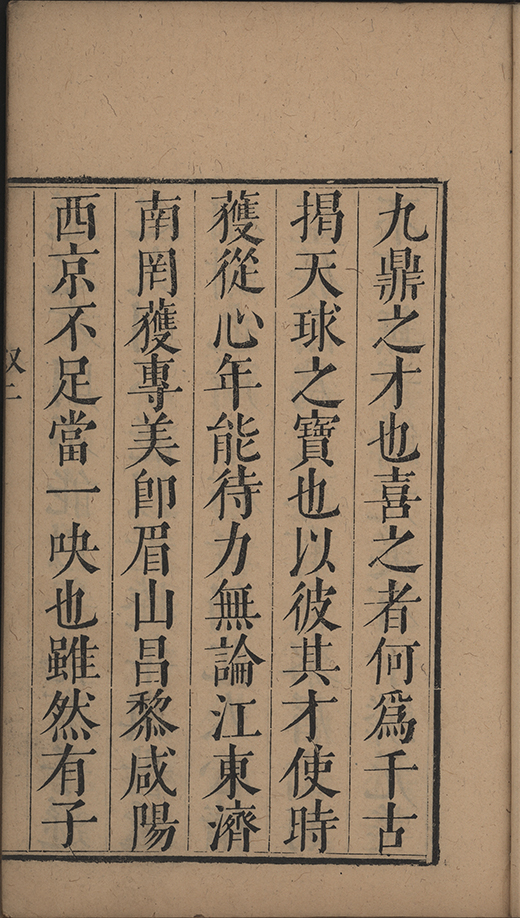 九鼎之才也喜之者何爲千古
揭天球之寶也以彼其才使時
獲從心年能待力無論江東濟
南罔獲專美卽眉山昌黎咸陽
西京不足當一吷也雖然有子